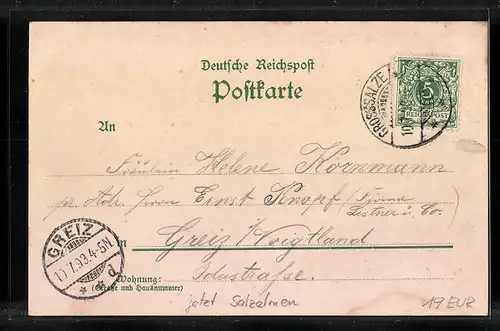 Deutsche Reichspost
Postkarte
5
REICHSPOST
GROSSSALZE
An
Fräulein Helene Körnmann
pr. Adr. Herrn Ernst Knopf (Firma
Leitner u. Co.
in Greiz i/Voigtland
Idastraße.
Wohnung:
(Straße und Hausnummer)
GREIZ
10.7.93.4-5N
d
jetzt Salzelmen
19 EUR